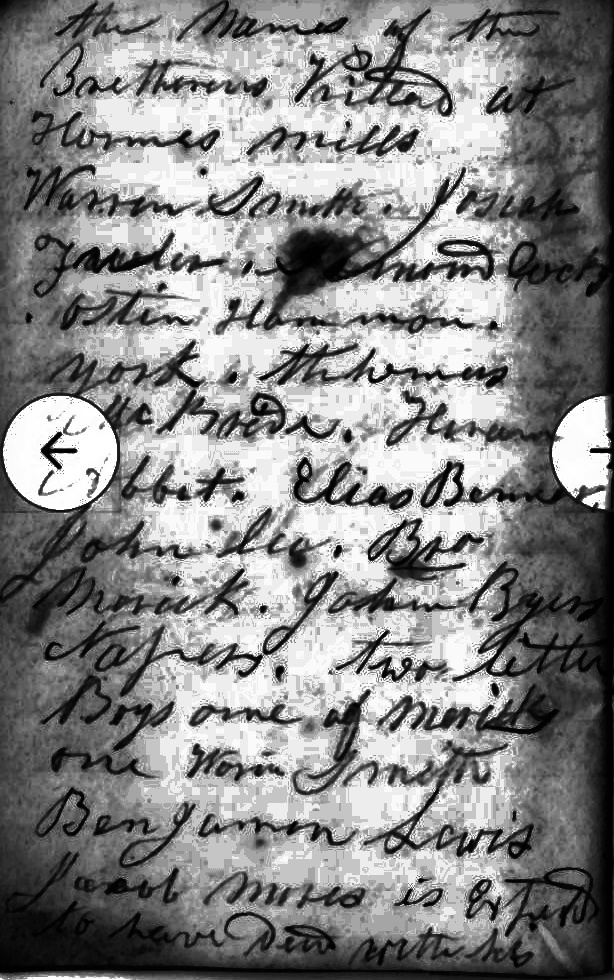 the Names of the
Bretherens Killed at
Hormes mills
Warren Smith. Josiah
Fuller. Simond Cocks
. ostin Hammon.
york. thhomus
Mc Bride. Hiram
bbit. Elias Benner
John Lee. Bro
Merick. John Byers
Napress. two little
Boys one of Merick
one Warin Smith
Bengamon Lewis
Jacob mires is Exspected
to have Died with his